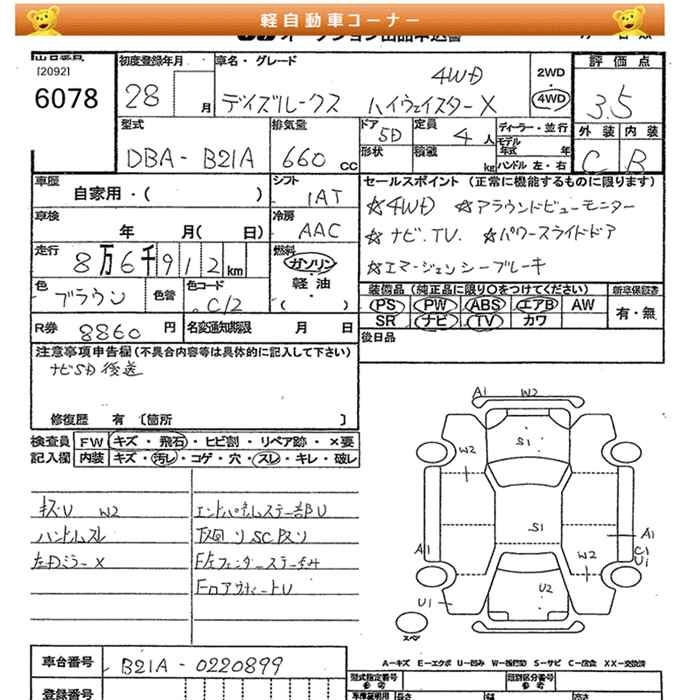 軽自動車コーナー
[2092]
6078
初度登録年月
28
月
車名・グレード
4WD
デイズルークス ハイウェイスターX
2WD
4WD
評価点
3.5
外装 内装
C B
型式
DBA-B21A
排気量
660 cc
ドア
5D
定員
4 人
形状
積載
kg
ディーラー・並行
モデル年式 年
ハンドル 左・右
車歴
自家用・( )
シフト
IAT
セールスポイント (正常に機能するものに限ります)
☆4WD ☆アラウンドビューモニター
☆ナビ.TV. ☆パワースライドドア
☆エマージェンシーブレーキ
車検
年 月( 日)
冷房
AAC
走行
8万6千912km
燃料
ガソリン
・
軽油
・
( )
色
ブラウン
色替
色コード
C12
装備品 (純正品に限り○をつけてください)
PS PW ABS エアB AW
SR ナビ TV カワ
新車保証書
有・無
R券 8860 円
名変通知期限 月 日
後日品
注意事項申告欄(不具合内容等は具体的に記入して下さい)
ナビSD後送
修復歴 有 〔箇所 〕
検査員記入欄
FW キズ・飛石・ヒビ割・リペア跡・×要
内装 キズ・汚レ・コゲ・穴・スレ・キレ・破レ
キズU W2
ハンドルスレ
左ドミラーX
エンドパネルステー部U
下廻りSCサビ
F左フェンダーステー歪み
A1 W2
S1
W2
S1
A1
A1
C1
U1
W2
U2
U1
スペア
A-キズ E-エクボ U-凹み W-補修跡 S-サビ C-腐食 XX-交換済
車台番号
B21A-0220899
登録番号
型式指定番号
参考
類別区分番号
参考
長さ
幅
高さ